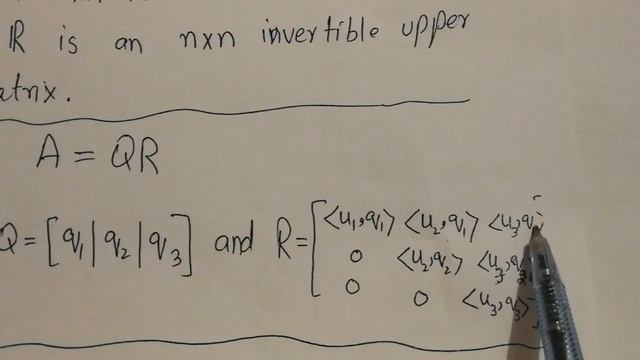 R is an nxn invertible upper
atrix.
A = QR
Q = [q₁ | q₂ | q₃] and R = [⟨u₁,q₁⟩ ⟨u₂,q₁⟩ ⟨u₃,q
0 ⟨u₂,q₂⟩ ⟨u₃,q₂
0 0 ⟨u₃,q₃⟩